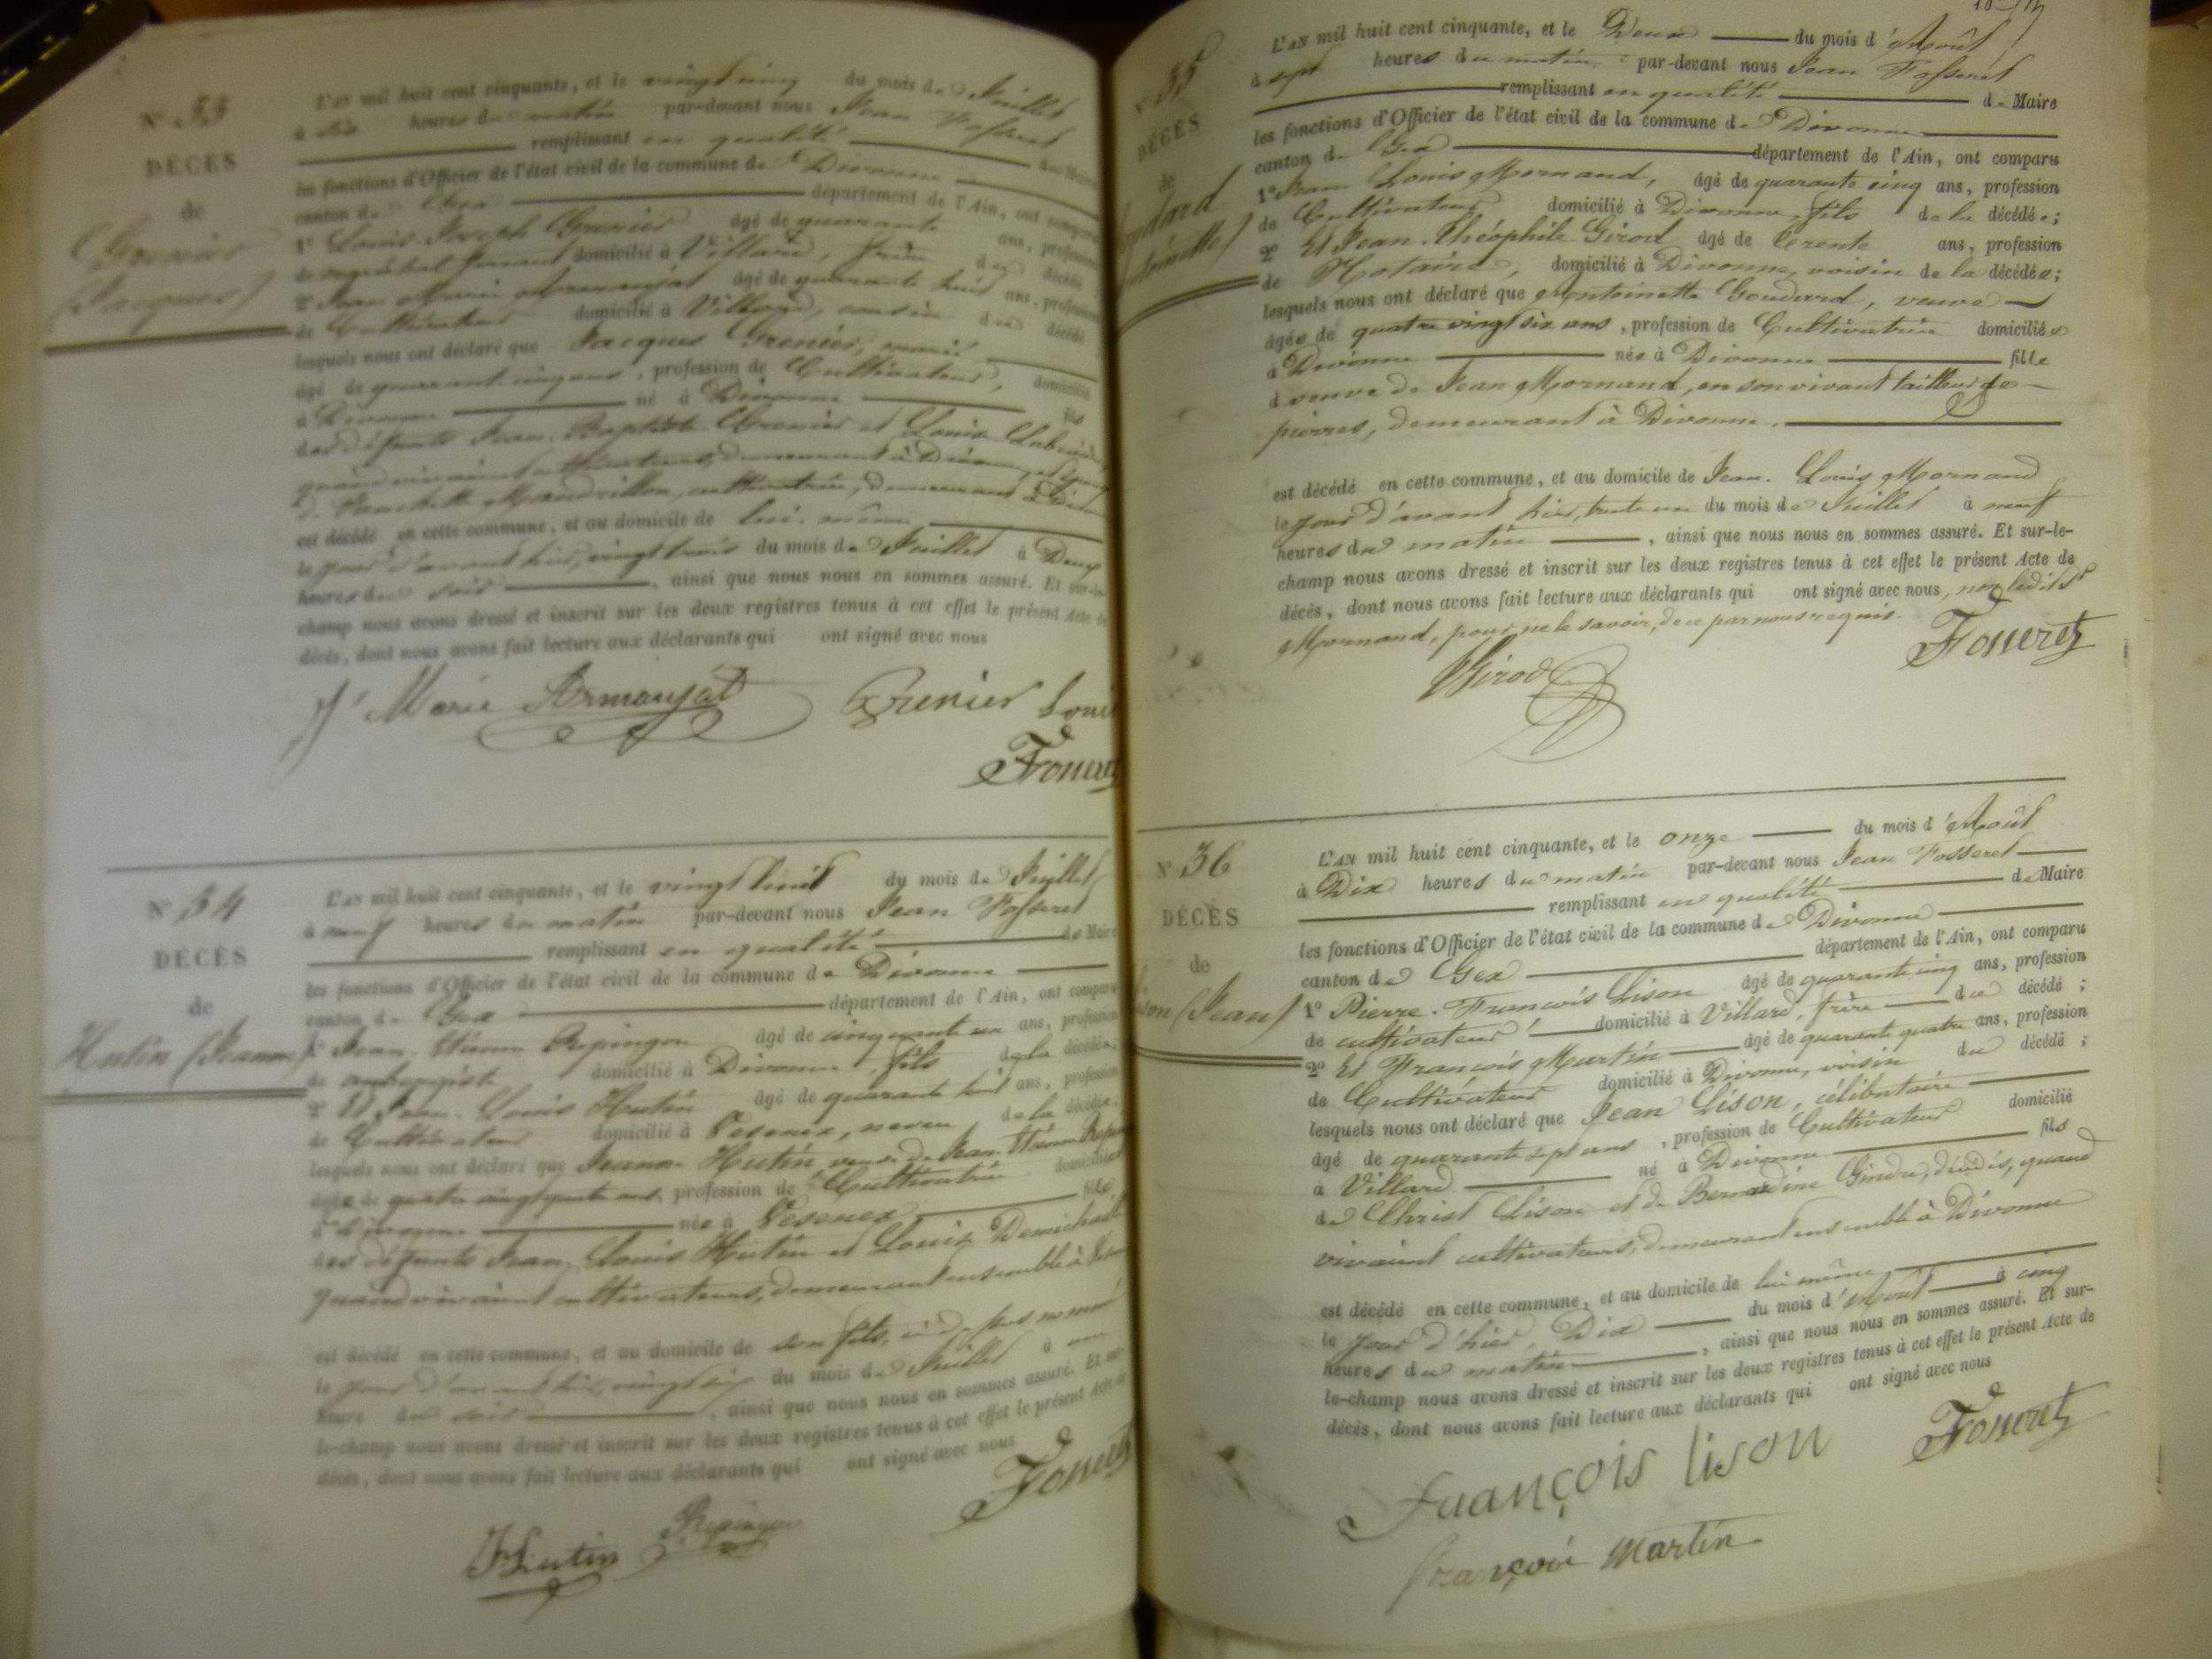 N° 33
DÉCÈS
de
Grenier
(Jacques)
L'AN mil huit cent cinquante, et le vingt cinq du mois de Juillet
à six heures du matin par-devant nous Jean Fosseret
remplissant en qualité de Maire
les fonctions d'Officier de l'état civil de la commune de Divonne
canton de Gex département de l'Ain, ont comparu
1° Louis Joseph Grenier âgé de quarante ans, profession
de maréchal ferrant domicilié à Villard, frère du décédé
2° Jean Marie Armanjat âgé de quarante huit ans, profession
de Cultivateur domicilié à Villard, cousin du décédé
lesquels nous ont déclaré que Jacques Grenier, marié
âgé de quarante cinq ans, profession de Cultivateur, domicilié
à Divonne né à Divonne fils
des défunts Jean-Baptiste Grenier et Louise
quand vivaient cultivateurs, demeurant à Divonne, et époux
de Mandrillon, cultivatrice, demeurant à
est décédé en cette commune, et au domicile de lui-même
le jour d'avant hier, vingt trois du mois de Juillet à Deux
heures du soir, ainsi que nous nous en sommes assuré. Et sur-le-
champ nous avons dressé et inscrit sur les deux registres tenus à cet effet le présent Acte de
décès, dont nous avons fait lecture aux déclarants qui ont signé avec nous
J Marie Armanjat Grenier Loui
Fosseret
N° 34
DÉCÈS
de
Hutin (Jeanne)
L'AN mil huit cent cinquante, et le vingt huit du mois de Juillet
à neuf heures du matin par-devant nous Jean Fosseret
remplissant en qualité de Maire
les fonctions d'Officier de l'état civil de la commune de Divonne
canton de Gex département de l'Ain, ont comparu
1° Jean-Etienne Repingon âgé de cinquante un ans, profession
de aubergiste domicilié à Divonne, fils de la décédée,
2° Et Jean-Louis Hutin âgé de quarante huit ans, profession
de Cultivateur domicilié à Vesenex, neveu de la décédée,
lesquels nous ont déclaré que Jeanne Hutin veuve de Jean Etienne
âgée de quatre vingt quatre ans, profession de Cultivatrice domiciliée
à Divonne née à Vesenex fille
des défunts Jean-Louis Hutin et Louise
quand vivaient cultivateurs, demeurant ensemble à
est décédé en cette commune, et au domicile de son fils, ci-dessus nommé
le jour d'avant hier, vingt six du mois de Juillet à un
heure du soir, ainsi que nous nous en sommes assuré. Et sur-
le-champ nous avons dressé et inscrit sur les deux registres tenus à cet effet le présent Acte de
décès, dont nous avons fait lecture aux déclarants qui ont signé avec nous
Fosseret
JHutin Repingon
35
DÉCÈS
de
dard
toinette)
L'AN mil huit cent cinquante, et le Deux du mois d'Août
à sept heures du matin par-devant nous Jean Fosseret
remplissant en qualité de Maire
les fonctions d'Officier de l'état civil de la commune de Divonne
canton de Gex département de l'Ain, ont comparu
1° Jean Louis Mornand, âgé de quarante cinq ans, profession
de Cultivateur domicilié à Divonne, fils de la décédée;
2° Et Jean-Théophile Girod âgé de trente ans, profession
de Notaire, domicilié à Divonne, voisin de la décédée;
lesquels nous ont déclaré que Antoinette Goudard, veuve
âgée de quatre vingt six ans, profession de Cultivatrice domiciliée
à Divonne née à Divonne fille
d veuve de Jean Mornand, en son vivant tailleur de
pierres, demeurant à Divonne.
est décédé en cette commune, et au domicile de Jean-Louis Mornand
le jour d'avant hier, trente un du mois de Juillet à neuf
heures du matin, ainsi que nous nous en sommes assuré. Et sur-le-
champ nous avons dressé et inscrit sur les deux registres tenus à cet effet le présent Acte de
décès, dont nous avons fait lecture aux déclarants qui ont signé avec nous, non ledit Sr
Mornand, pour ne le savoir, de ce par nous requis.
Girod Fosseret
N° 36
DÉCÈS
de
son (Jean)
L'AN mil huit cent cinquante, et le onze du mois d'Août
à Dix heures du matin par-devant nous Jean Fosseret
remplissant en qualité de Maire
les fonctions d'Officier de l'état civil de la commune de Divonne
canton de Gex département de l'Ain, ont comparu
1° Pierre-François Lison âgé de quarante cinq ans, profession
de cultivateur domicilié à Villard, frère du décédé;
2° Et François Martin âgé de quarante quatre ans, profession
de Cultivateur domicilié à Divonne, voisin du décédé;
lesquels nous ont déclaré que Jean Lison, célibataire
âgé de quarante sept ans, profession de Cultivateur domicilié
à Villard né à Divonne fils
de Christ Lison et de Bernardine Gindre, décédés, quand
vivaient cultivateurs, demeurant ensemble à Divonne
est décédé en cette commune, et au domicile de lui même
le jour d'hier, Dix du mois d'Août à cinq
heures du matin, ainsi que nous nous en sommes assuré. Et sur-
le-champ nous avons dressé et inscrit sur les deux registres tenus à cet effet le présent Acte de
décès, dont nous avons fait lecture aux déclarants qui ont signé avec nous
François lison Fosseret
françois Martin